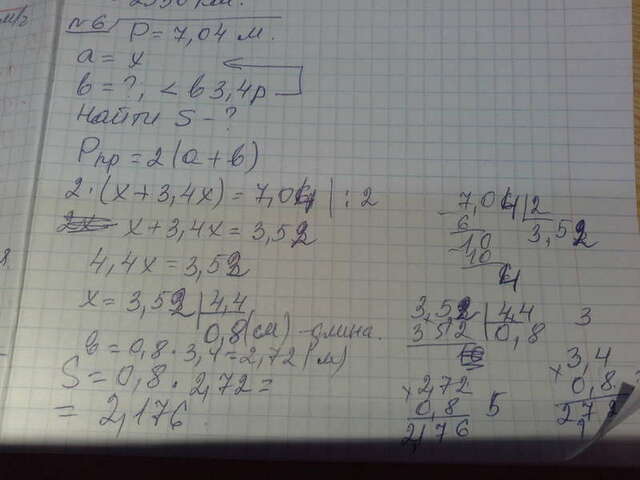 2550 км.
м/г
№6 P = 7,04 м.
a = x
в = ?, < в 3,4 р
Найти S - ?
Pпр = 2(a + в)
2 · (x + 3,4x) = 7,04 | : 2
x + 3,4x = 3,52
4,4x = 3,52
x = 3,52 | 4,4
0,8 (см) - длина.
в = 0,8 · 3,4 = 2,72 (м)
S = 0,8 · 2,72 =
= 2,176
- 7,04 | 2
6 3,52
- 10
10
4
3,52 | 4,4
352 0,8
3
× 2,72
0,8 5
2,176
× 3,4
0,8
272